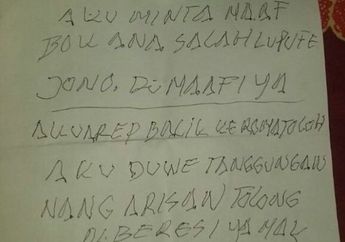 AKU MINTA MAAF
BOK ANA SALAH LUPUTE
JONO. DI MAAFI YA
AKU AREP BALIK KE RAMATOLOH
AKU DUWE TANGGUNGAN
NANG ARISAN TOLONG
DI BERESI YA MAK